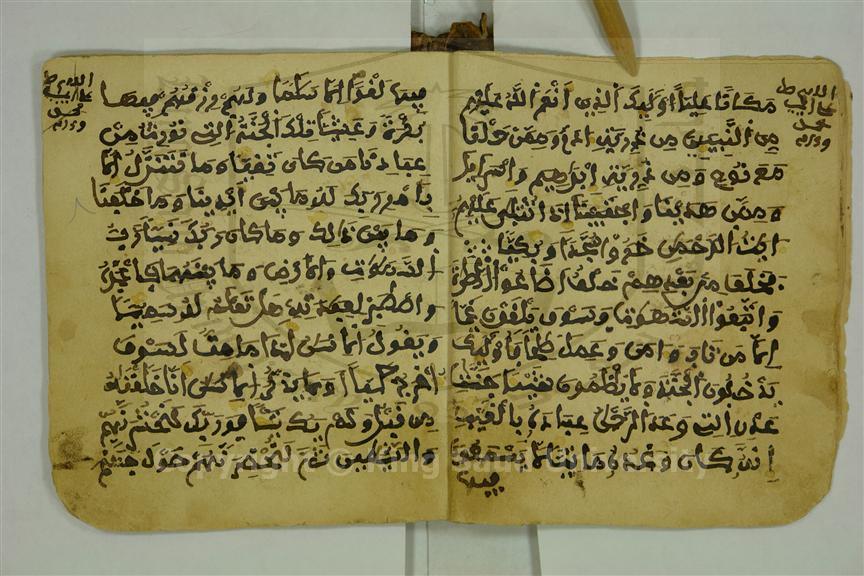 مكانا عليا اوليك الذين انعم الله عليهم
من النبيين من ذرية ادم وممن حملنا
مع نوح ومن ذرية ابرهيم واسرايل
وممن هدينا واجتبينا اذا تتلى عليهم
ايت الرحمن خروا سجدا وبكيا
فخلف من بعدهم خلف اضاعوا الصلوة
واتبعوا الشهوات فسوف يلقون غيا
الا من تاب وامن وعمل صلحا فاوليك
يدخلون الجنة ولا يظلمون شيئا جنت
عدن التي وعد الرحمن عباده بالغيب
انه كان وعده ماتيا لا يسمعون
فيها
فيها لغوا الا سلما ولهم رزقهم فيها
بكرة وعشيا تلك الجنة التي نورث من
عبادنا من كان تقيا وما نتنزل الا
بامر ربك له ما بين ايدينا وما خلفنا
وما بين ذالك وما كان ربك نسيا رب
السموت والارض وما بينهما فاعبده
واصطبر لعبدته هل تعلم له سميا
ويقول الانسن اذا ما مت لسوف
اخرج حيا اولا يذكر الانسن انا خلقنه
من قبل ولم يك شيا فوربك لنحشرنهم
والشيطين ثم لنحضرنهم حول جهنم
Copyright © King Saud University